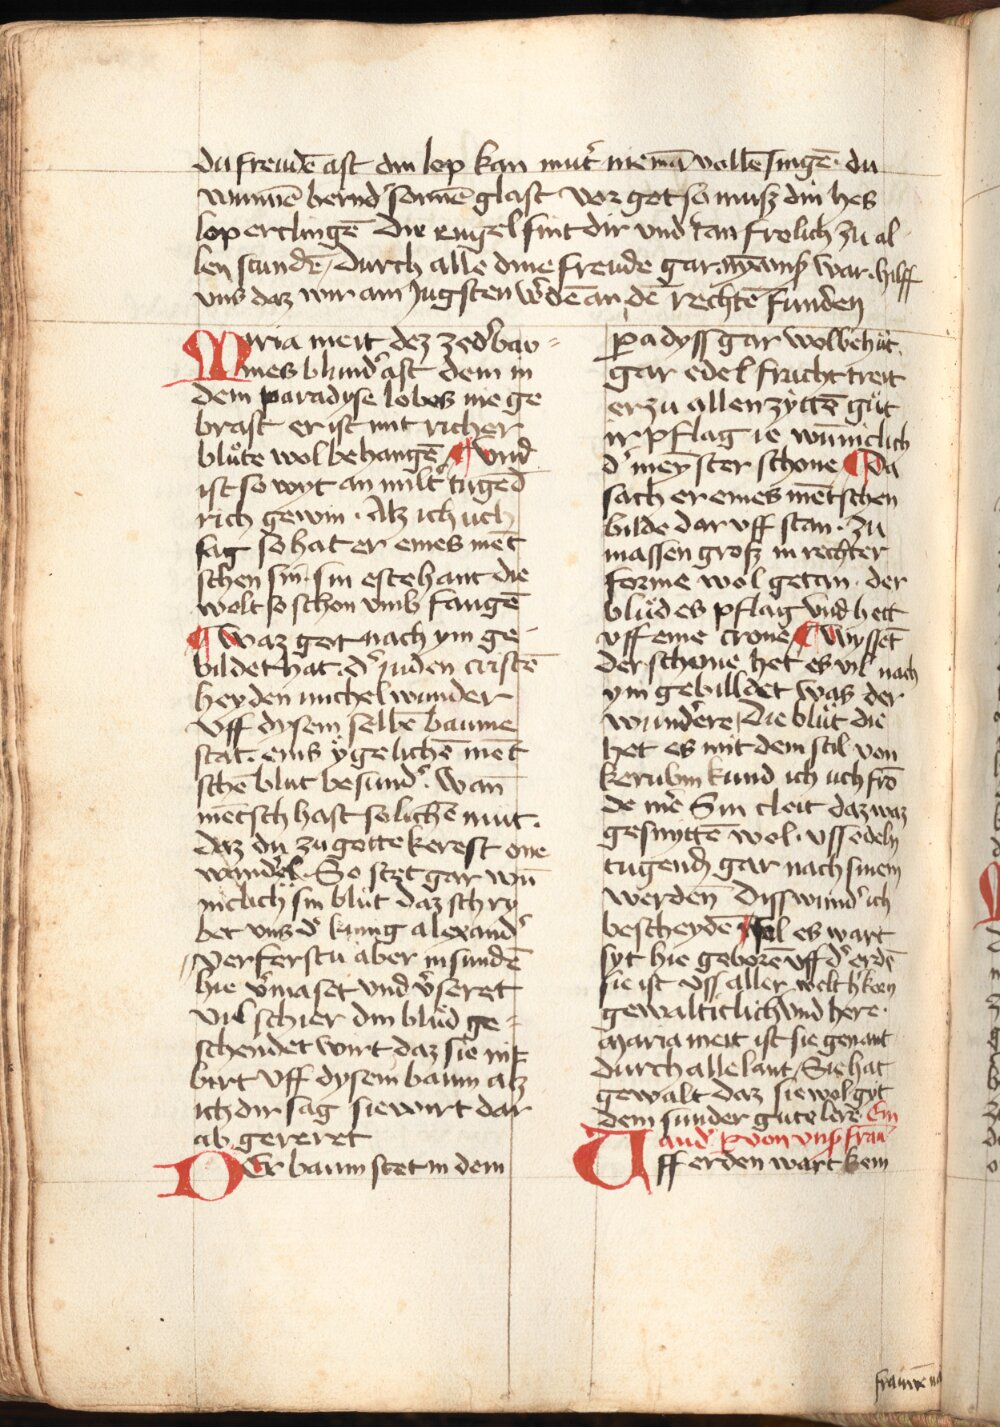 du freudē ast din lop kan mut᷑ niemā vollē singē · du
wunnē bernd᷑ sonnē glast vor got so muſz din hes
lop erclingē Die engel sint dir vnd᷑tan frolich zu al-
len stundē / durch alle dine freude gar · war · hilff
vns daz wir am Jugsten w᷑dē an dē rechtē funden
Maria meit dez zed᷑bau=
mes blund᷑ ast dem in
dem paradyse lobes nie ge
brast er ist mit richer
blůte wol behangē ¶ vnd
ist so wyt an milt᷑ tugēd
rich gewin · Alz ich uch
sag so hat er eines mēt
schen sin · sin este hant die
welt so schon vmb fangē
¶ waz got nach ym ge-
bildet hat · d᷑ juden cristē
heyden michel wunder
vff dysem selbē baume
stat · eins ygelichē mēt
schē blut besund᷑ · wan
mētsch hast solichē mut ·
daz du zu gotte kerest one
wandel · So stet gar wū
niclich sin blůt daz schry
bet vns d᷑ kunig alexand᷑
verferstu aber in sundē
hie v᷑maset vnd v᷑seret
vil schier din blůd ge=
schendet wirt daz sie nit
birt vff dysem baum alz
ich dir sag sie wirt dar
ab gereret
Der baum stet in dem
padyss gar wol behůt
gar edel frucht treit
er zu allen zyttē gůt
ir pflag ie wūniclich
d᷑ meyster schone ¶ Da
sach er eines mētschen
bilde dar vff stan · zu
massen groſz in rechter
forme wol getan · der
blůd es pflag vnd hett
vff eine crone ¶ wyssēt
der schone het es vil nach
ym gebilldet was der
wundere / Die blůt die
het es mit dem stil von
kerubin kund ich uch frō
de me᷑ Sin cleit daz waz
gesnyttē wol · vss edeln
tugend gar nach sinem
werden Dyss wund᷑ ich
bescheydē sol es wart
syt hie geborē vff d᷑ erdē
sie ist vss aller welt
gewalticlich vnd here ·
Maria meit ist sie genant
durch alle lant / Sie hat
gewalt daz sie wol gyt
dem sunder gute lere · Ein
and᷑ von vnß frau᷑
Vff erden wart kein